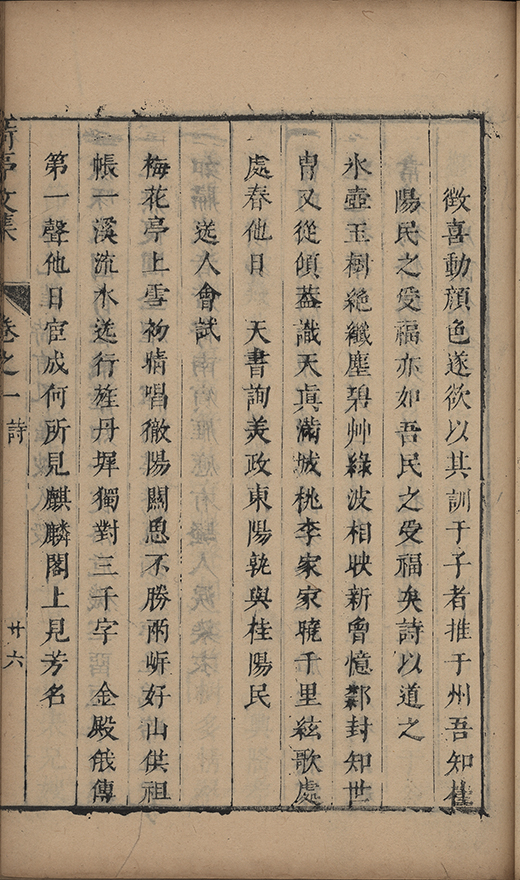 徵喜動顔色遂欲以其訓于子者推于州吾知桂
陽民之受福亦如吾民之受福矣詩以道之
氷壺玉樹絶纖塵碧艸綠波相映新曾憶鄰封知世
冑又從傾葢識天眞滿城桃李家家曉千里絃歌處
處春他日　天書詢美政東陽孰與桂陽民
送人會試
梅花亭上雪初晴唱徹陽關思不勝兩岍好山供祖
帳一溪流水送行旌丹墀獨對三千字　金殿俄傳
第一聲他日宦成何所見麒麟閣上見芳名
亭文集
卷之一
詩
廿六